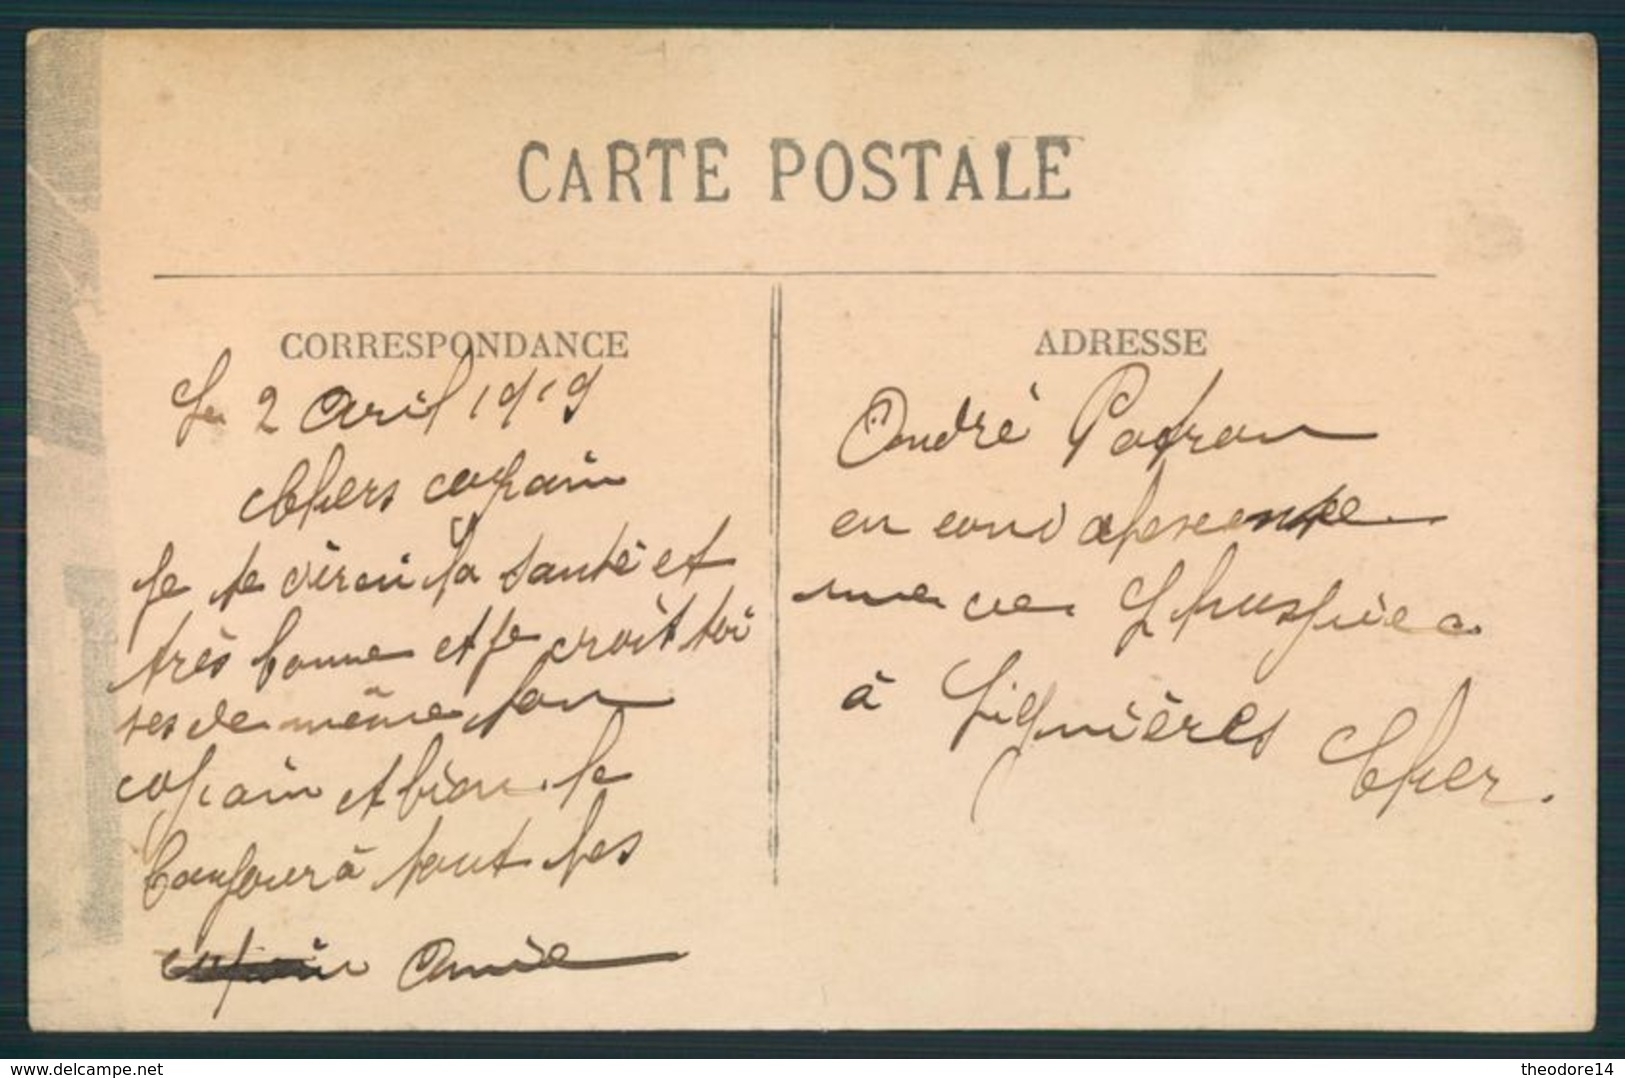 CARTE POSTALE
CORRESPONDANCE
Le 2 Avril 1919
Chers copain
Je te
la santé et
très bonne et je croit toi
ses de même ton
copain et bien le
bonjour à tout les
copain Amie
ADRESSE
André
en
a L'huspice
à Lignières Cher.
delcampe.net
theodore14